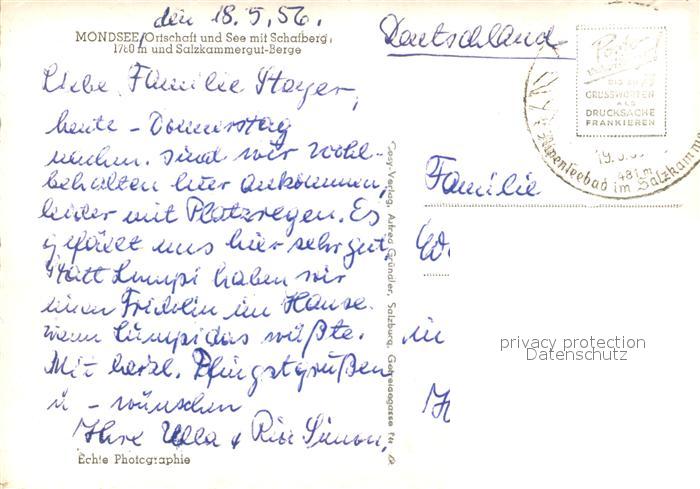 den 18.5.56.
MONDSEE, Ortschaft und See mit Schafberg,
1780 m und Salzkammergut-Berge
Liebe Familie Stayer,
heute - Donnerstag
nachm. sind wir wohl-
behalten hier ankommen,
leider mit Platzregen. Es
gefällt uns hier sehr gut,
statt Lumpi haben wir
einen Fridolin im Hause.
wenn Lumpi das wüßte.
Mit herzl. Pfingstgrüßen
u - wünschen
Ihre Ulla & Simon,
Echte Photographie
Cosy-Verlag, Alfred Gründler, Salzburg, Getreidegasse
Deutschland
BIS ZU
GRUSSWORTEN
ALS
DRUCKSACHE
FRANKIEREN
19.5.
481 m
Alpenseebad im Salzkamm
Familie
W.
in
privacy protection
Datenschutz